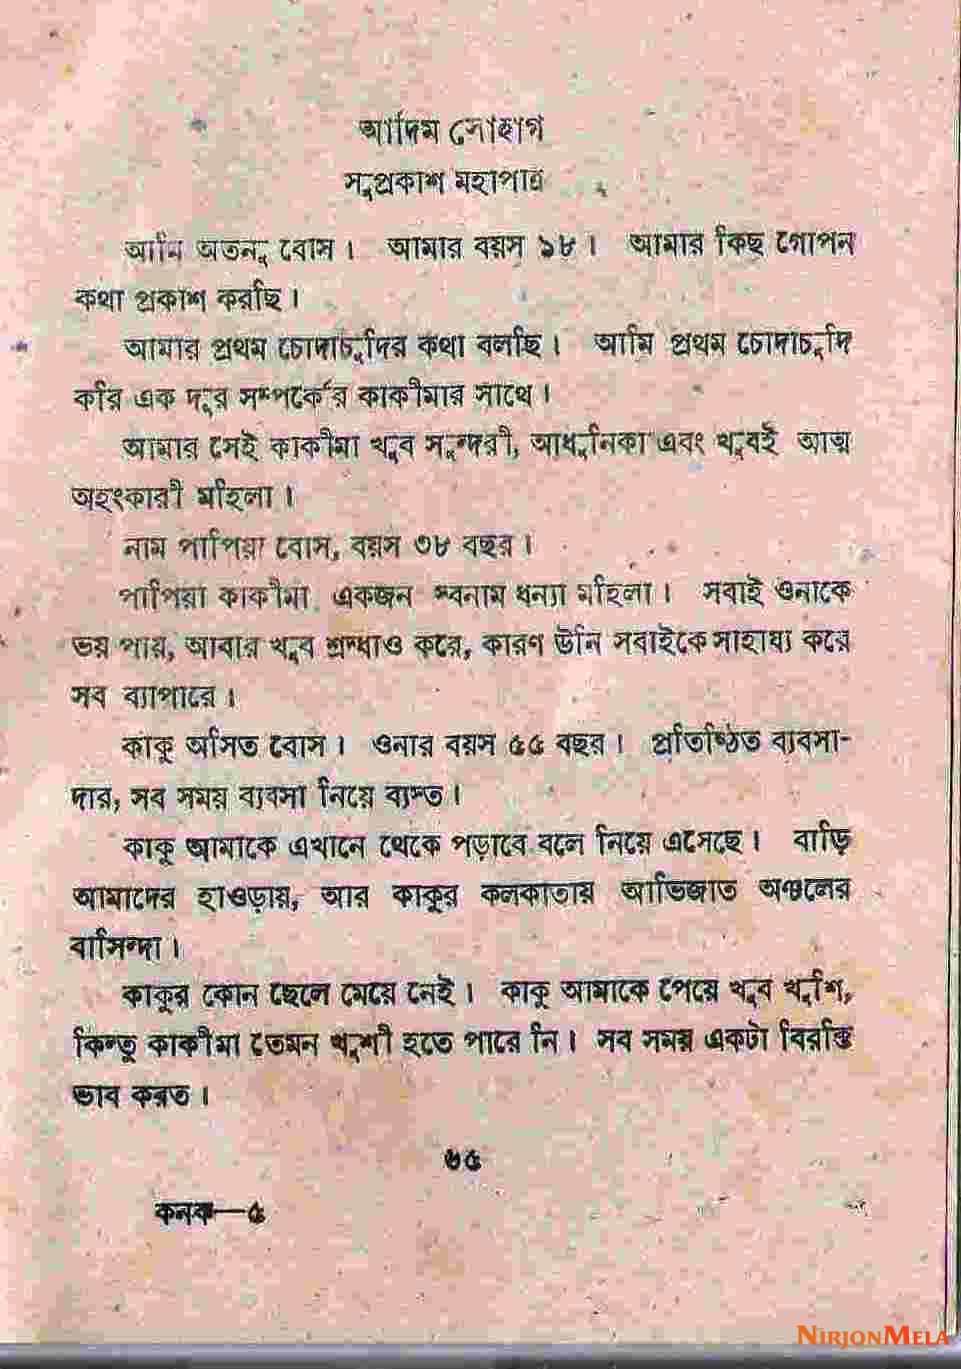 আদিম সোহাগ
সুপ্রকাশ মহাপাত্র
আমি অতনু বোস। আমার বয়স ১৮। আমার কিছু গোপন
কথা প্রকাশ করছি।
আমার প্রথম চোদাচুদির কথা বলছি। আমি প্রথম চোদাচুদি
করি এক দূর সম্পর্কের কাকীমার সাথে।
আমার সেই কাকীমা খুব সুন্দরী, আধুনিকা এবং খুবই আত্ম
অহংকারী মহিলা।
নাম পাপিয়া বোস, বয়স ৩৮ বছর।
পাপিয়া কাকীমা একজন স্বনাম ধন্যা মহিলা। সবাই ওনাকে
ভয় পায়, আবার খুব শ্রদ্ধাও করে, কারণ উনি সবাইকে সাহায্য করে
সব ব্যাপারে।
কাকু অসিত বোস। ওনার বয়স ৫৫ বছর। প্রতিষ্ঠিত ব্যবসা-
দার, সব সময় ব্যবসা নিয়ে ব্যস্ত।
কাকু আমাকে এখানে থেকে পড়াবে বলে নিয়ে এসেছে। বাড়ি
আমাদের হাওড়ায়, আর কাকুর কলকাতায় আভিজাত অঞ্চলের
বাসিন্দা।
কাকুর কোন ছেলে মেয়ে নেই। কাকু আমাকে পেয়ে খুব খুশি,
কিন্তু কাকীমা তেমন খুশী হতে পারে নি। সব সময় একটা বিরক্তি
ভাব করত।
৬৫
কনক—৫
NIRJONMELA